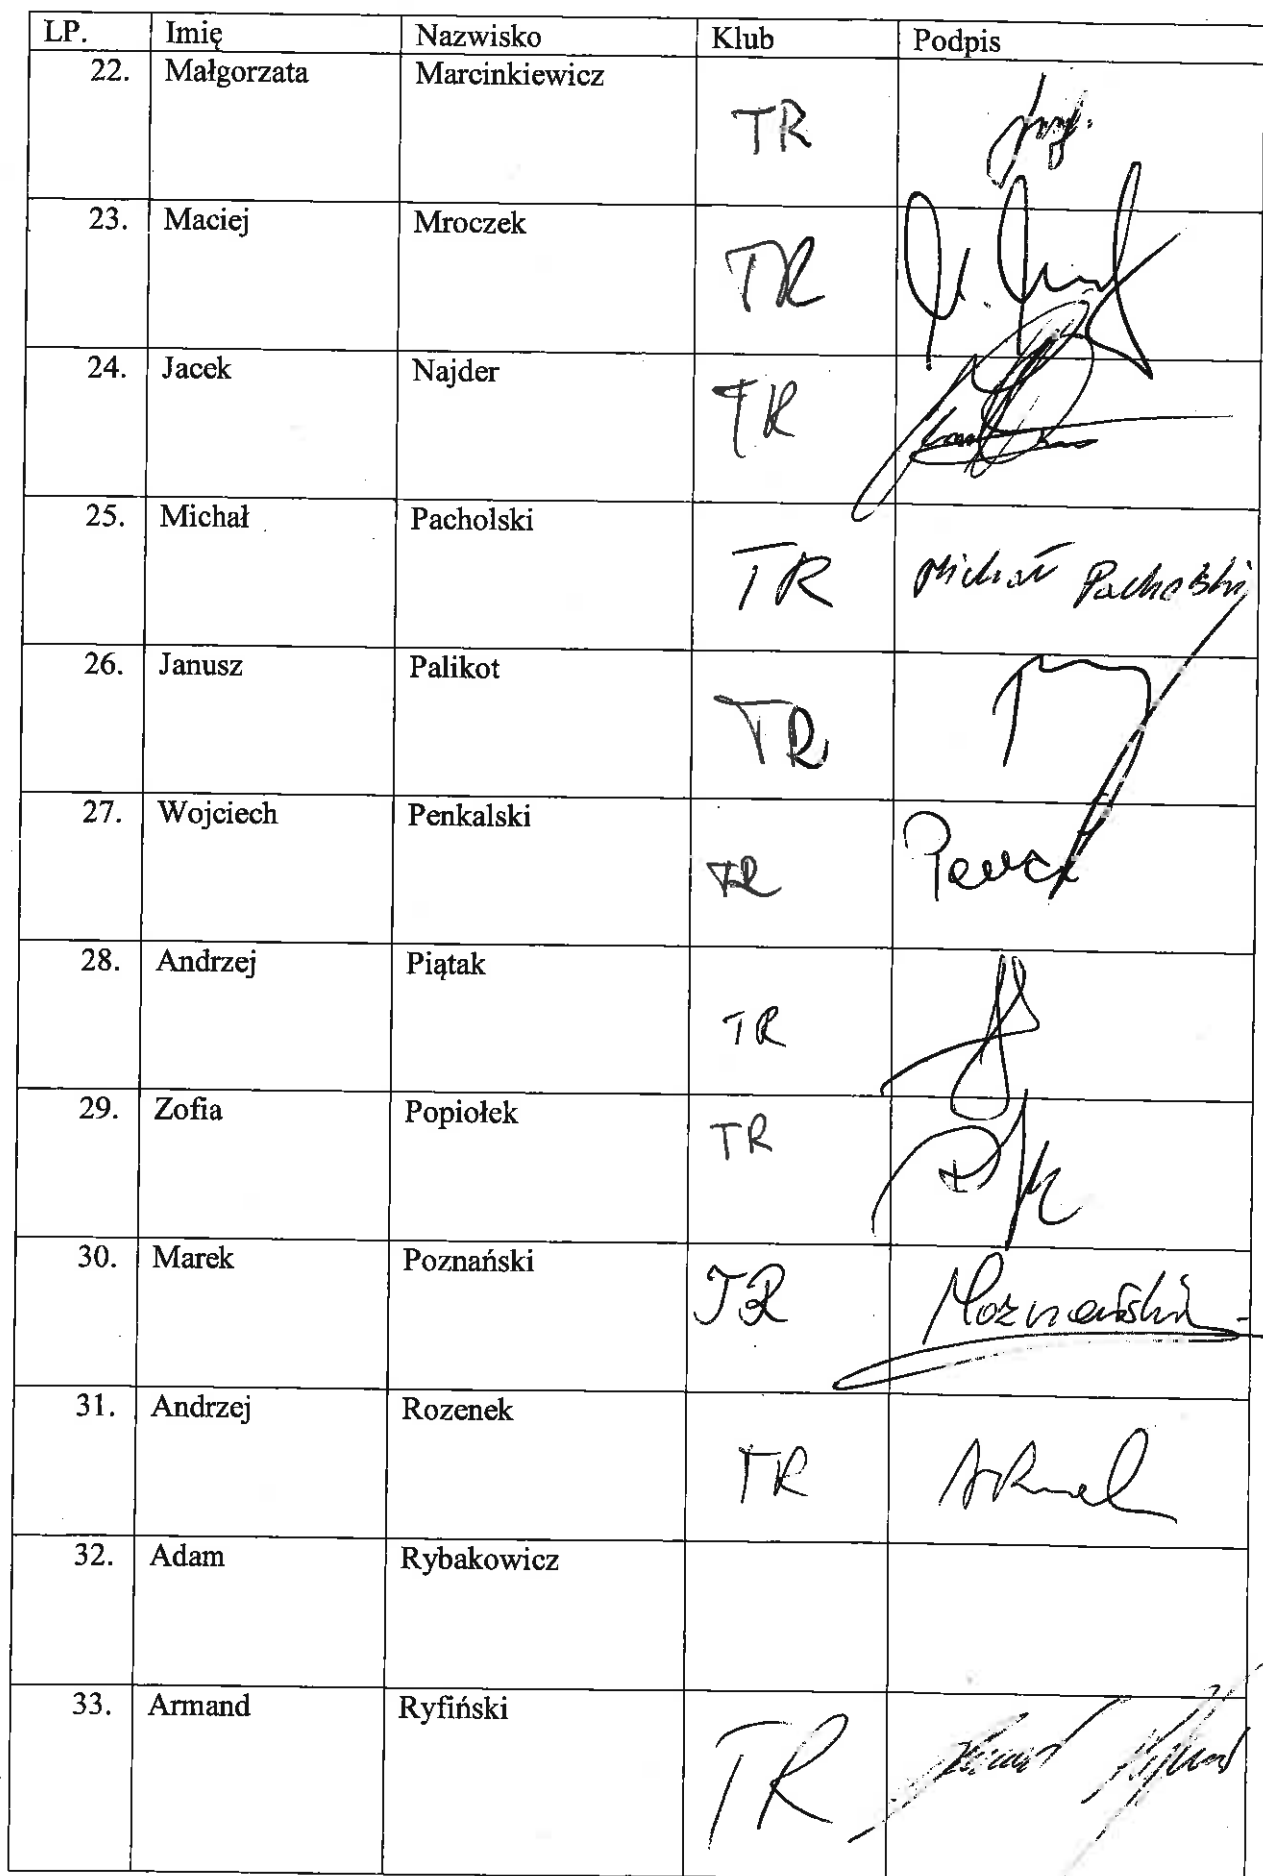 LP. Imię Nazwisko Klub Podpis
22. Małgorzata Marcinkiewicz TR
23. Maciej Mroczek TR
24. Jacek Najder TR
25. Michał Pacholski TR Michał Pacholski
26. Janusz Palikot TR
27. Wojciech Penkalski TR
28. Andrzej Piątak TR
29. Zofia Popiołek TR
30. Marek Poznański TR
31. Andrzej Rozenek TR
32. Adam Rybakowicz
33. Armand Ryfiński TR